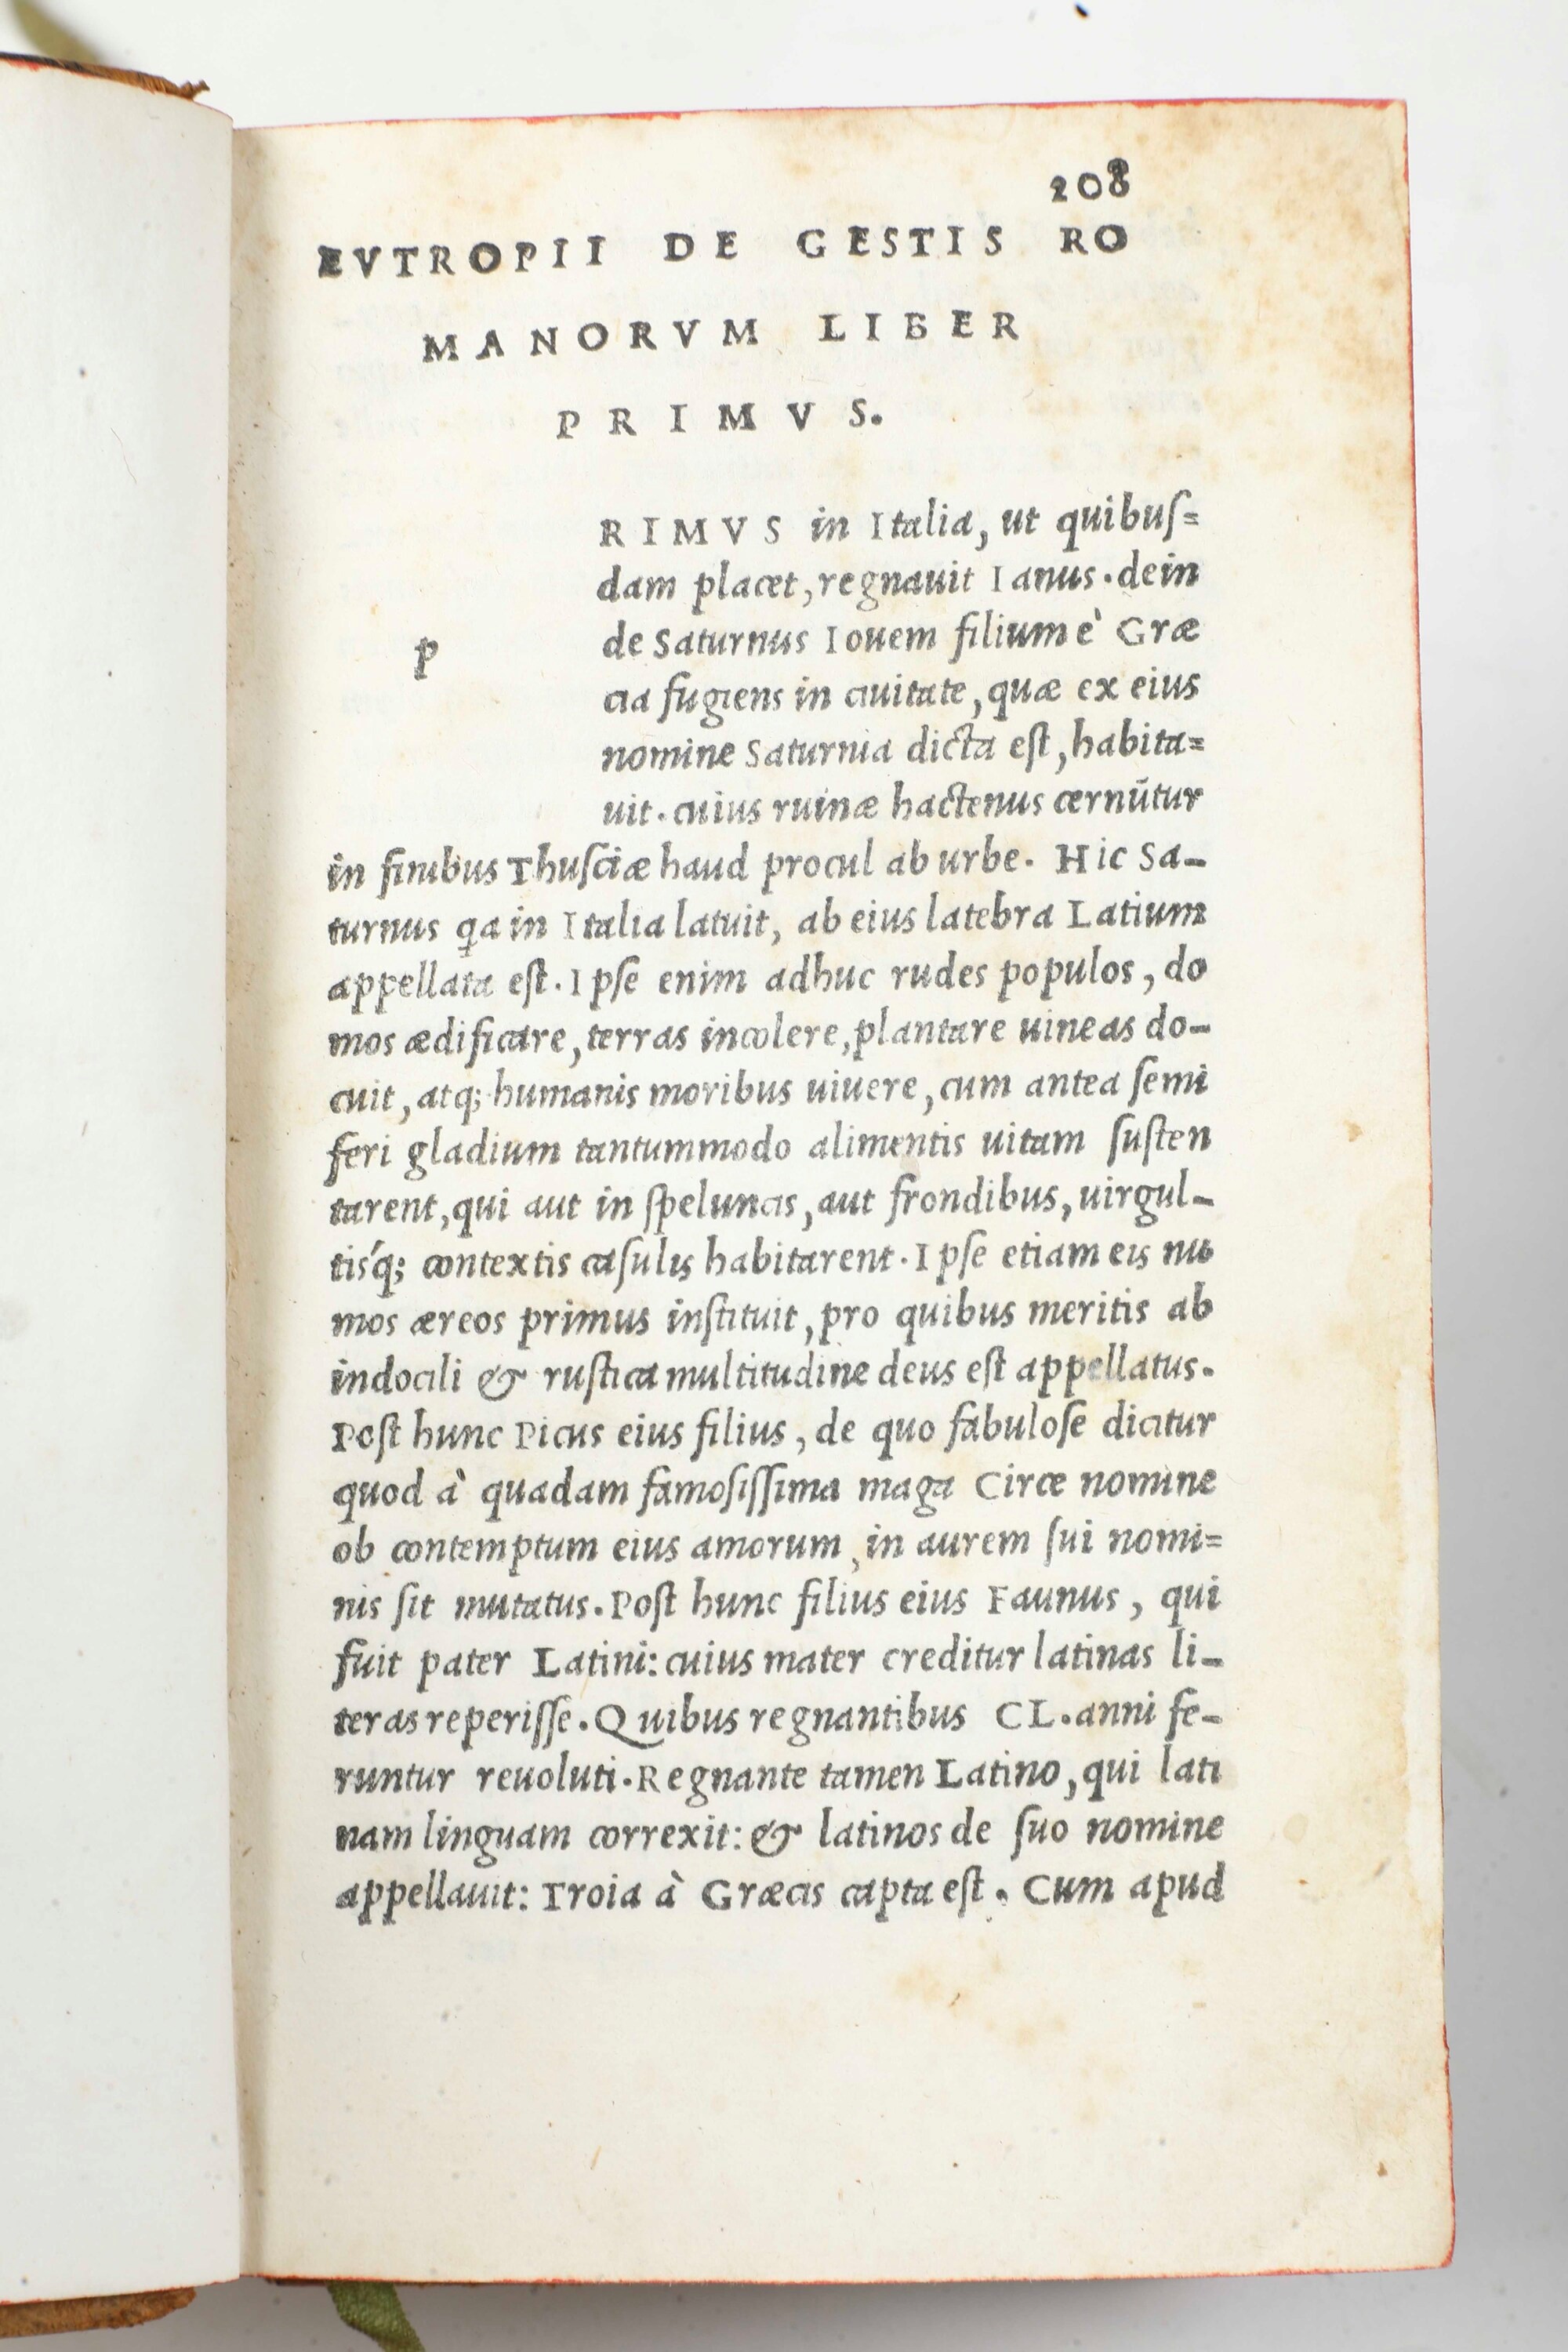 208
EVTROPII DE GESTIS RO
MANORVM LIBER
PRIMVS.
p
RIMVS in Italia, ut quibuſ=
dam placet, regnauit Ianus. dein
de Saturnus Iouem filium è Græ
cia fugiens in ciuitate, quæ ex eius
nomine Saturnia dicta eſt, habita=
uit. cuius ruinæ hactenus cernūtur
in finibus Thuſciæ haud procul ab urbe. Hic Sa-
turnus ꝗa in Italia latuit, ab eius latebra Latium
appellata eſt. Ipſe enim adhuc rudes populos, do
mos ædificare, terras incolere, plantare uineas do-
cuit, atq; humanis moribus uiuere, cum antea ſemi
feri gladium tantummodo alimentis uitam ſuſten
tarent, qui aut in ſpeluncis, aut frondibus, uirgul-
tiśq; contextis caſulis habitarent. Ipſe etiam eis nu
mos æreos primus inſtituit, pro quibus meritis ab
indocili & ruſtica multitudine deus eſt appellatus.
Poſt hunc Picus eius filius, de quo fabuloſe dicitur
quod à quadam famoſiſſima maga Circe nomine
ob contemptum eius amorum, in auem ſui nomi=
nis ſit mutatus. Poſt hunc filius eius Faunus, qui
fuit pater Latini: cuius mater creditur latinas li-
teras reperiſſe. Quibus regnantibus CL. anni fe-
runtur reuoluti. Regnante tamen Latino, qui lati
nam linguam correxit: & latinos de ſuo nomine
appellauit: Troia à Græcis capta eſt. Cum apud